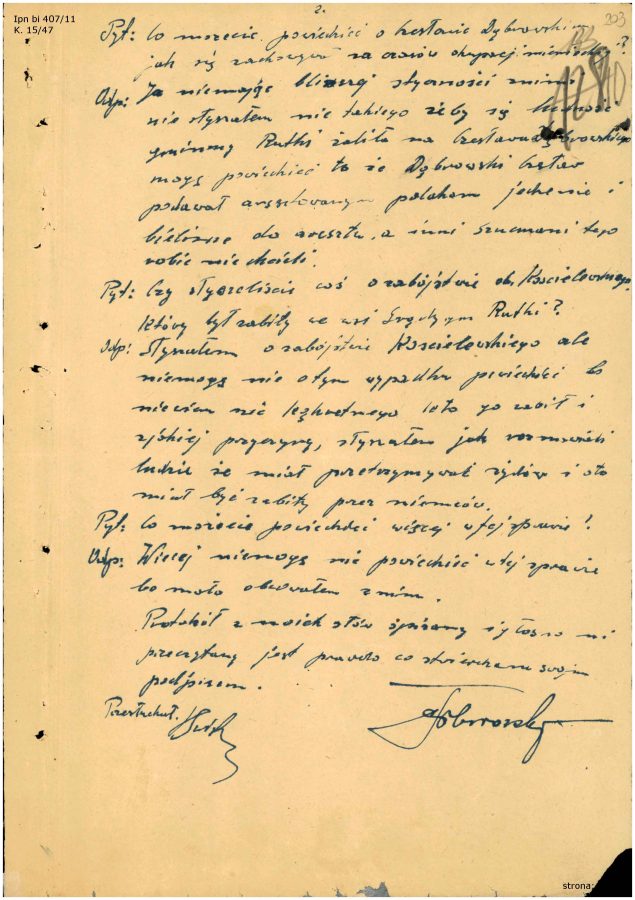 Ipn bi 407/11
K. 15/47
2.
203
Pyt: Co możecie powiedzieć o Czesławie Dąbrowskim
jak się zachowywał za czasów okupacji niemieckiej?
Odp: Ja niemając bliższej styczności z nim
nie słyszałem nic takiego żeby się ludność
gminny Rutki żaliła na Czesława Dąbrowskiego
mogę powiedzieć to że Dąbrowski Czesław
podawał aresztowanym polakom jedzenie i
bieliznę do aresztu, a inni szucmani tego
robić nie chcieli.
Pyt: Czy słyszeliście coś o zabójstwie ob. Kościelewskiego
który był zabity we wsi Rutki?
Odp: Słyszałem o zabójstwie Kościelewskiego ale
niemogę nic o tym wypadku powiedzieć bo
niewiem nic kąkretnego kto go zabił i
z jakiej przyczyny, słyszałem jak rozmawiali
ludzie że miał przetrzymywać żydów i oto
miał być zabity przez niemców.
Pyt: Co możecie powiedzieć więcej w tej sprawie?
Odp: Więcej niemogę nic powiedzieć w tej sprawie
bo mało obcowałem z nim.
Protokół z moich słów spisany i głośno mi
przeczytany jest prawdą co stwierdzam swoim
podpisem.
Przesłuchał.
strona: